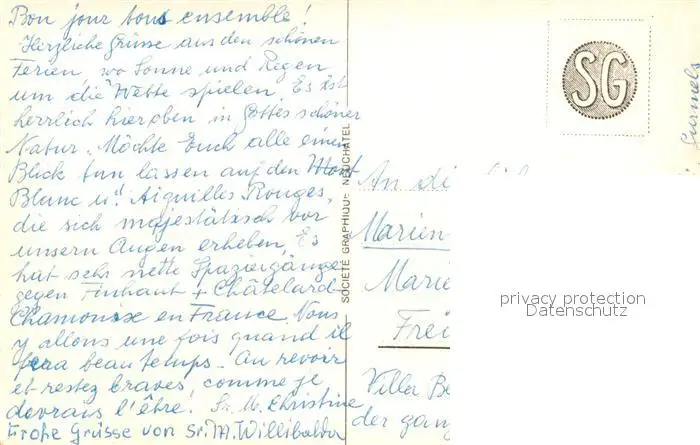 Bon jour tous ensemble!
Herzliche Grüsse aus den schönen
Ferien, wo Sonne und Regen
um die Wette spielen. Es ist
herrlich hier oben in Gottes schöner
Natur. Möchte Euch alle einen
Blick tun lassen auf den Mont
Blanc u. Aiguilles Rouges,
die sich majestätisch vor
unsern Augen erheben. Es
hat sehr nette Spaziergänge
gegen Finhaut + Châtelard
Chamonix en France. Nous
y allons une fois quand il
fera beau temps. Au revoir
et restez braves, comme je
devrais l'être! Sr. M. Christine
Frohe Grüsse von Sr. M. Willibalda
SOCIÉTÉ GRAPHIQUE NEUCHATEL
SG
An di
Marien
Marie
Frei
Villa Be
der ganz
privacy protection
Datenschutz